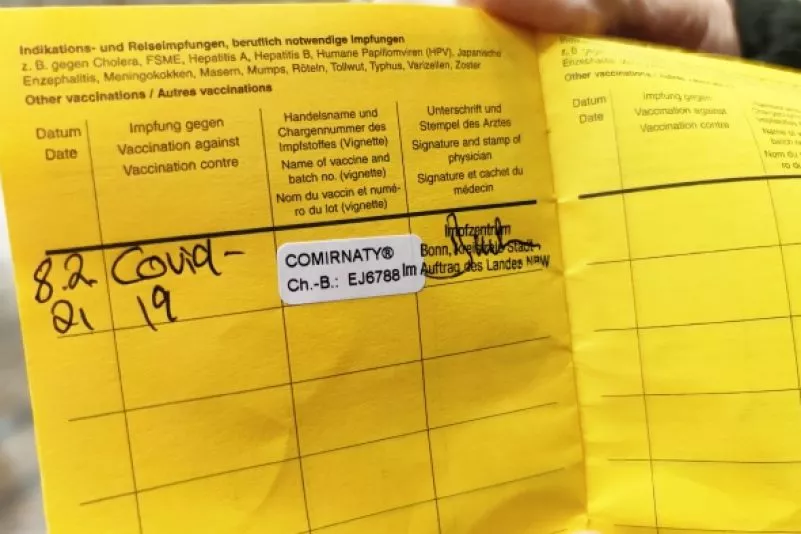 Indikations- und Reiseimpfungen, beruflich notwendige Impfungen
z. B. gegen Cholera, FSME, Hepatitis A, Hepatitis B, Humane Papillomviren (HPV), Japanische
Enzephalitis, Meningokokken, Masern, Mumps, Röteln, Tollwut, Typhus, Varizellen, Zoster
Other vaccinations / Autres vaccinations
Datum
Date
Impfung gegen
Vaccination against
Vaccination contre
Handelsname und
Chargennummer des
Impfstoffes (Vignette)
Name of vaccine and
batch no. (vignette)
Nom du vaccin et numé-
ro du lot (vignette)
Unterschrift und
Stempel des Arztes
Signature and stamp of
physician
Signature et cachet du
médecin
8.2
21
Covid-
19
COMIRNATY®
Ch.-B.: EJ6788
Impfzentrum
Bonn, Stadt
Im Auftrag des Landes NRW
Indikations- und
z. B. gegen
Enzephalitis,
Other vaccinations / Autres
Datum
Date
Impfung gegen
Vaccination against
Vaccination contre